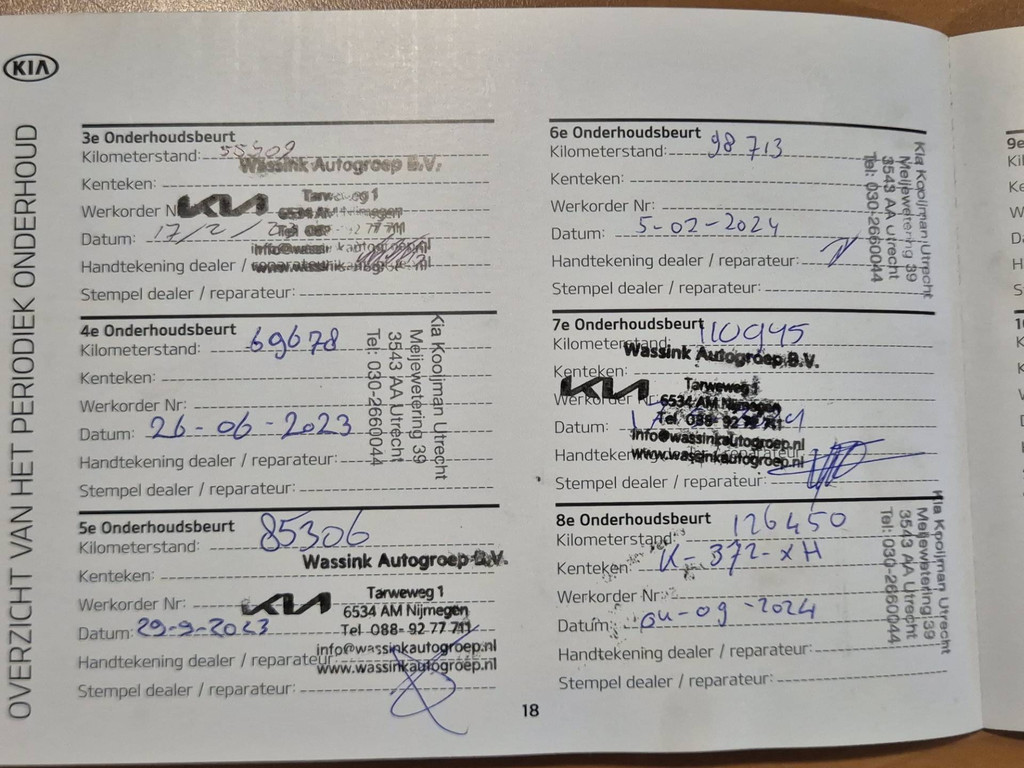 KIA
OVERZICHT VAN HET PERIODIEK ONDERHOUD
3e Onderhoudsbeurt
Kilometerstand: 55909
Wassink Autogroep B.V.
Kenteken:
Tarweweg 1
Werkorder N
KIA
6534 AM Nijmegen
Tel 088- 92 77 711
Datum: 17/2/
info@wassinkautogroep.nl
Handtekening dealer / reparateur:
www.wassinkautogroep.nl
Stempel dealer / reparateur:
4e Onderhoudsbeurt
Kilometerstand: 69678
Kenteken:
Werkorder Nr:
Datum: 26-06-2023
Handtekening dealer / reparateur:
Stempel dealer / reparateur:
Kia Kooijman Utrecht
Meijewetering 39
3543 AA Utrecht
Tel: 030-2660044
5e Onderhoudsbeurt
Kilometerstand: 85306
Wassink Autogroep B.V.
Kenteken:
Tarweweg 1
Werkorder Nr:
KIA
6534 AM Nijmegen
Datum: 29-9-2023
Tel 088- 92 77 711
info@wassinkautogroep.nl
Handtekening dealer / reparateur:
www.wassinkautogroep.nl
Stempel dealer / reparateur:
6e Onderhoudsbeurt
Kilometerstand: 98713
Kenteken:
Werkorder Nr:
Datum: 5-02-2024
Handtekening dealer / reparateur:
Stempel dealer / reparateur:
Kia Kooijman Utrecht
Meijewetering 39
3543 AA Utrecht
Tel: 030-2660044
7e Onderhoudsbeurt
Kilometerstand: 110945
Wassink Autogroep B.V.
Kenteken:
KIA
Tarweweg 1
Werkorder Nr:
6534 AM Nijmegen
Datum:
Tel 088- 92 77 711
info@wassinkautogroep.nl
Handtekening dealer / reparateur:
www.wassinkautogroep.nl
Stempel dealer / reparateur:
8e Onderhoudsbeurt
Kilometerstand: 126450
Kenteken: K-372-XH
Werkorder Nr:
Datum: 04-09-2024
Handtekening dealer / reparateur:
Stempel dealer / reparateur:
Kia Kooijman Utrecht
Meijewetering 39
3543 AA Utrecht
Tel: 030-2660044
18
9e